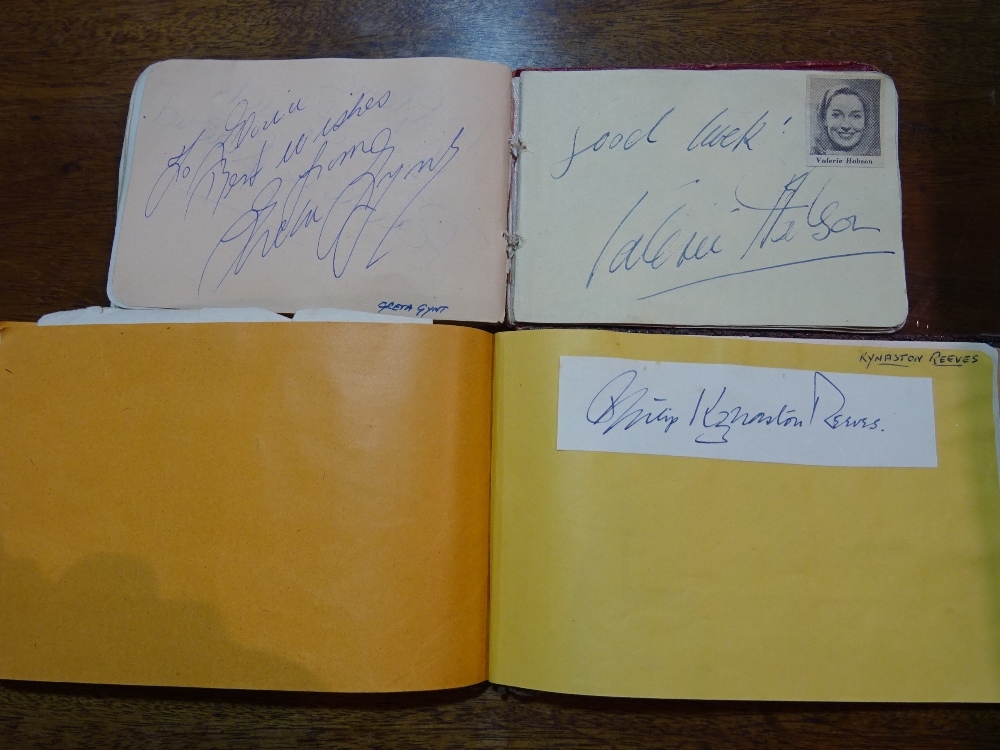 To Gloria
Best wishes
from
Greta Gynt
GRETA GYNT
good luck!
Valerie Hobson
Valerie Hobson
KYNASTON REEVES
Philip Kynaston Reeves.